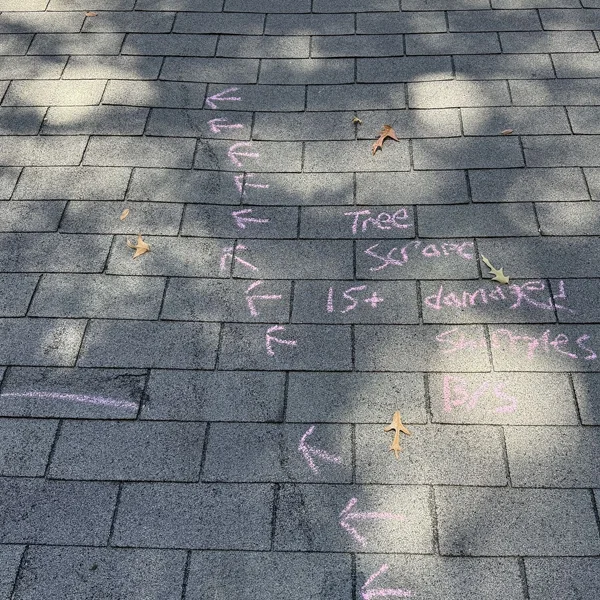 Tree
Scrape
15+ damaged
Shingles